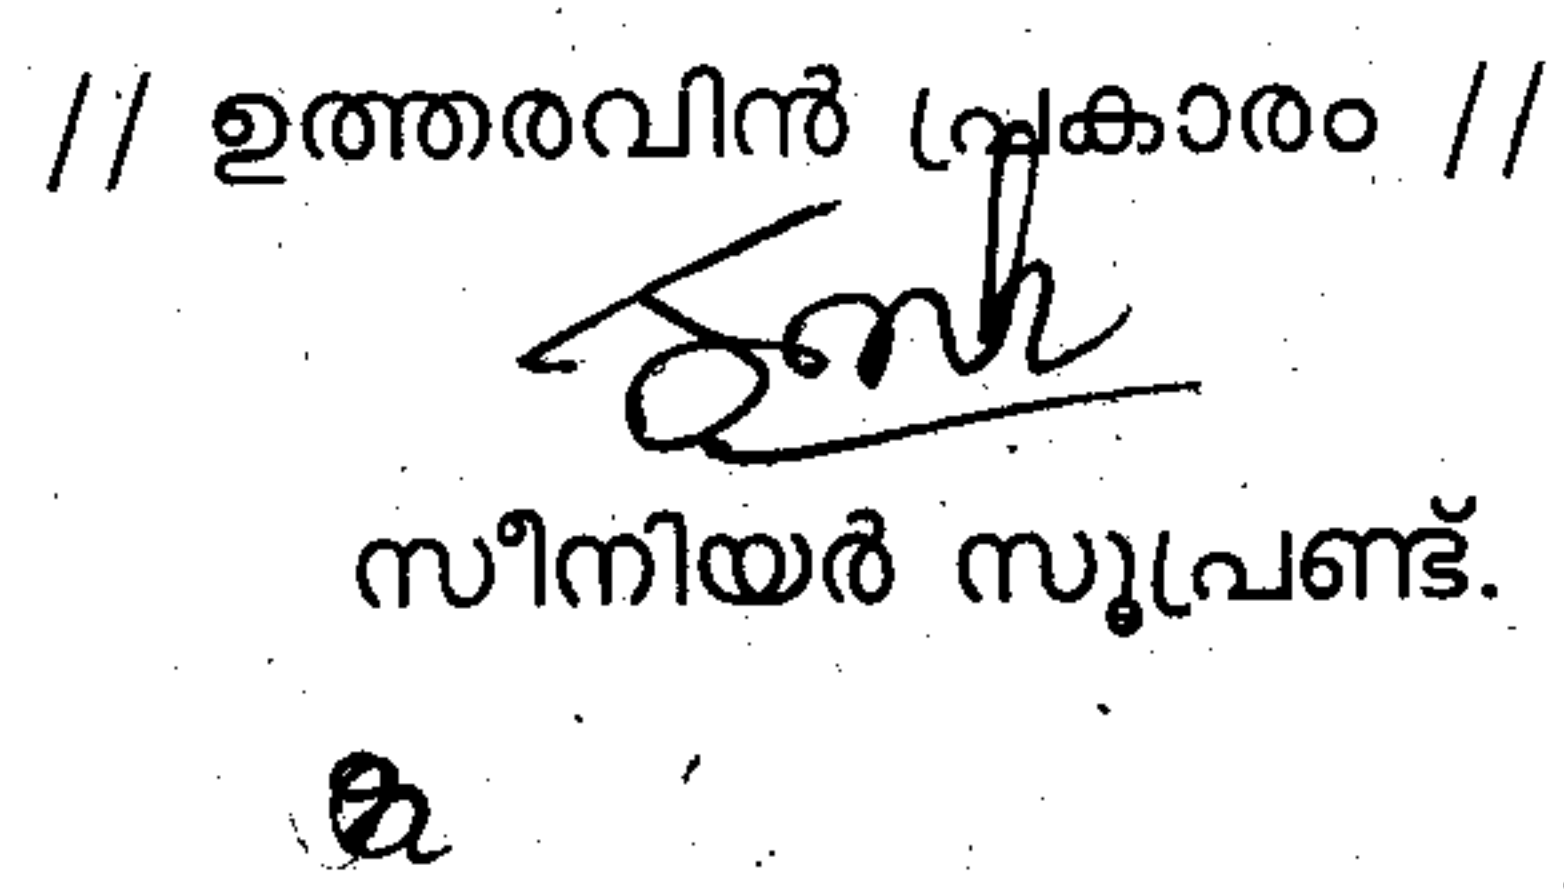 // ഉത്തരവിൻ പ്രകാരം //
സീനിയർ സൂപ്രണ്ട്.